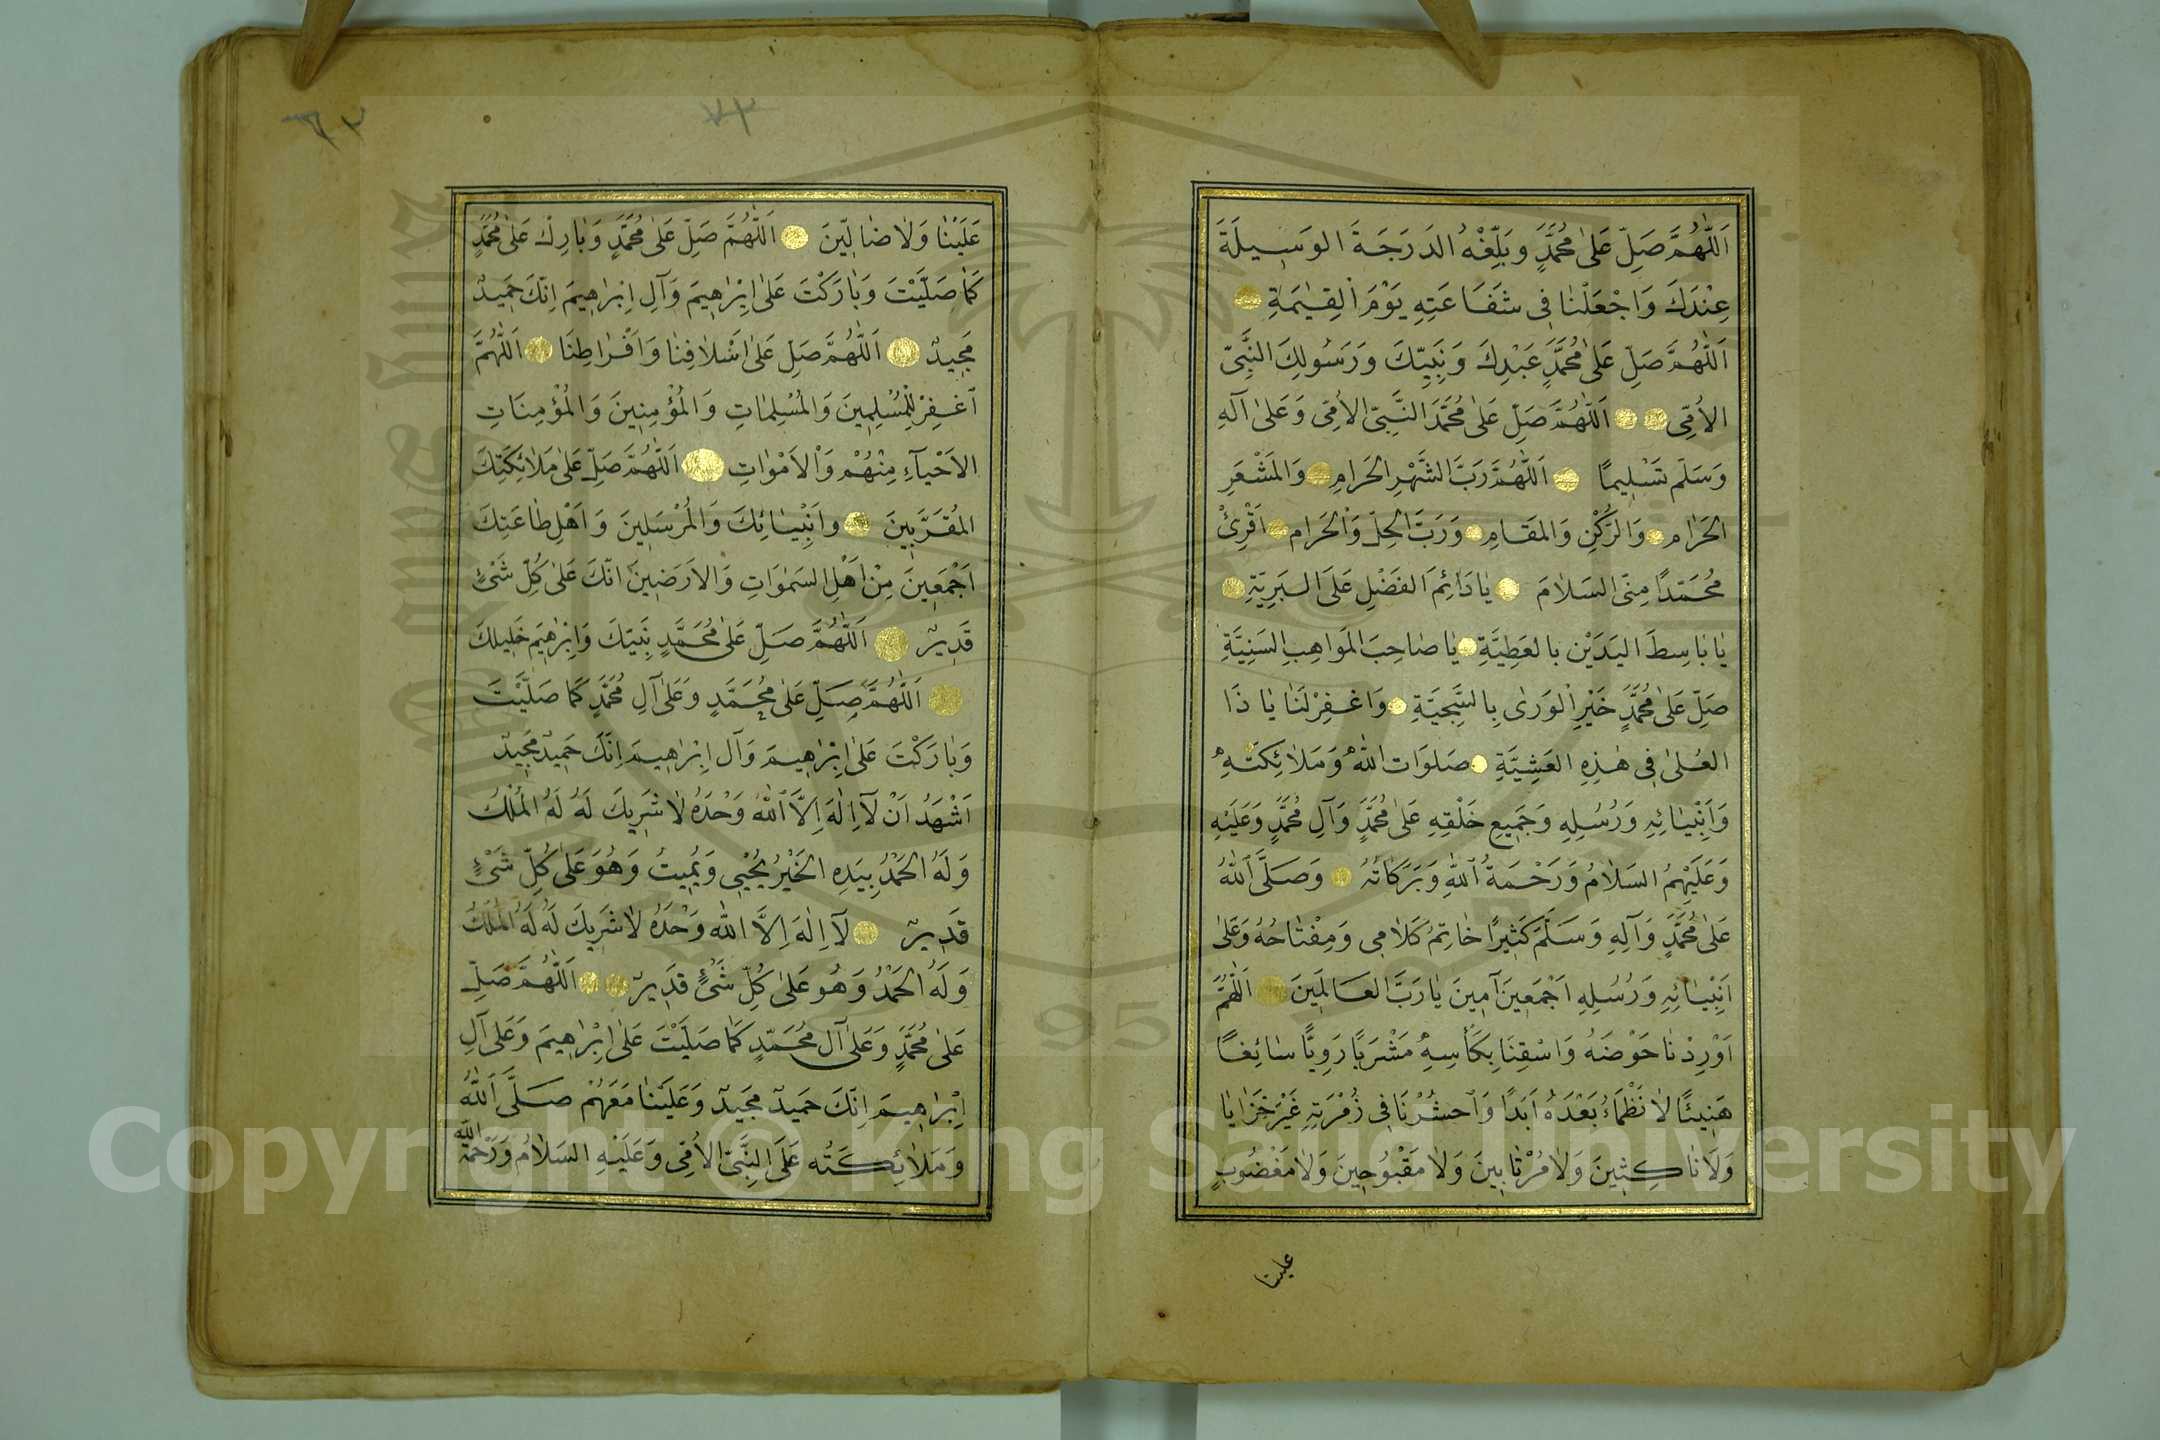 اَللّٰهُمَّ صَلِّ عَلٰى مُحَمَّدٍ وبَلِّغْهُ الدَرَجَةَ الوَسِيلَةَ
عِنْدَكَ وَاجْعَلْنٰا فِى شَفَاعَتِهِ يَوْمَ القِيٰمَةِ
اَللّٰهُمَّ صَلِّ عَلٰى مُحَمَّدٍ عَبْدِكَ وَنَبِيِّكَ وَرَسُولِكَ النَّبِىِّ
الاُمِّى اَللّٰهُمَّ صَلِّ عَلٰى مُحَمَّدَ النَّبِىِّ الاُمِّى وَعَلٰى آلَهِ
وَسَلَم تَسْلِيمًا اَللّٰهُمَّ رَبَّ الشَّهْرِ الحَرامِ وَالمَشْعَرِ
الحَرٰام وَالرُّكْنِ وَالمَقَامِ وَرَبَّ الحِلِّ وَالحَرَام اَقْرِئْ
مُحَمَّدًا مِنِّى السَلاٰمَ يٰا دَائِمَ الفَضْلِ عَلَى البَرِيَّةِ
يٰا بٰاسِطَ اليَدَيْن بالعَطِيَّةِ يٰا صٰاحِبَ المَوَاهِبِ السَنِيَّةِ
صَلِّ عَلٰى مُحَمَّدٍ خَيْرِ الوَرىٰ بِالسَّجِيَّةِ وَاغْفِرْلَنٰا يٰا ذَا
العُلىٰ فِى هٰذِهِ العَشِيَّةِ صَلَوَات اللّٰهُ وَمَلاٰئِكَتَهِ
وَاَنْبِيٰائِهِ وَرُسُلِهِ وَجَمِيعِ خَلْقِهِ عَلٰى مُحَمَّدٍ وَآلِ مُحَمَّدٍ وَعَلَيْهِ
وَعَلَيْهِمُ السَلاٰمُ وَرَحْمَةُ اللّٰهِ وَبَرَكَاتُهُ وَصَلَّى اللّٰهُ
عَلٰى مُحَمَّدٍ وَآلِهِ وَسَلَّمَ كَثِيرًا خٰاتِمُ كَلاٰمِى وَمِفْتٰاحُهُ وَعَلٰى
اَنْبِيٰائِهِ وَرُسُلِهِ اَجْمَعِينَ آمِينَ يٰا رَبَّ العَالَمِينَ اَللّٰهُمَّ
اَوْرِدْنٰا حَوْضَهُ وَاسْقِنٰا بِكَأْسِهِ مَشْرَبًا رَوِيًّا سٰائِغًا
هَنِيئًا لاٰ نَظْمَاءُ بَعْدَهُ اَبَدًا وَاحشُرْنَا فِى زُمْرَتِهِ غَيْرَ خَزٰايٰا
وَلَا نٰاكِثِينَ وَلاٰ مُرْتٰابِينَ وَلاٰ مَقْبُوحِينَ وَلاٰ مَغْضُوبٍ
علينا
٧٣
عَلَيْنٰا وَلاٰ ضٰالِّينَ اَللّٰهُمَّ صَلِّ عَلٰى مُحَمَّدٍ وَبٰارِكْ عَلٰى مُحَمَّدٍ
كَمٰا صَلَّيْتَ وَبٰارَكْتَ عَلٰى اِبْرٰاهِيمَ وَآلِ اِبْرٰاهِيمَ اِنَّكَ حَمِيدٌ
مَجِيدٌ اَللّٰهُمَّ صَلِّ عَلٰى اَسْلاٰفِنٰا وَاَفْرٰاطِنَا اَللّٰهُمَّ
اغفِرْ لِلْمُسْلِمِينَ وَالمُسْلِمٰاتِ وَالمُؤْمِنِينَ وَالمُؤْمِنَاتِ
الاَحْيآءِ مِنْهُمْ وَالاَمْوٰاتِ اَللّٰهُمَّ صَلِّ عَلٰى مَلاٰئِكَتِكَ
المُقَرَّبِينَ واَنْبِيٰائِكَ وَالمُرْسَلِينَ وَاَهْلِ طٰاعَتِكَ
اَجْمَعِينَ مِنْ اَهْلِ السَمٰوَاتِ وَالاَرَضِينَ انّكَ عَلٰى كُلِّ شَىْءٍ
قَدِيرٌ اَللّٰهُمَّ صَلِّ عَلٰى مُحَمَّدٍ نَبِيّكَ وَاِبْرٰهِيمَ خَلِيلكَ
اَللّٰهُمَّ صَلِّ عَلٰى مُحَمَّدٍ وَعَلٰى آلِ مُحَمَّدٍ كَمٰا صَلَّيْتَ
وَبٰارَكْتَ عَلٰى اِبْرٰاهِيمَ وَآل اِبْرٰاهِيمَ اِنَّكَ حَمِيدٌ مَجِيدٌ
اَشْهَدُ اَنْ لآ اِلٰهَ اِلاَّ اللّٰهُ وَحْدَهُ لاٰ شَرِيكَ لَهُ لَهُ المُلْكُ
وَلَهُ الحَمْدُ بِيَدِهِ الخَيْرُ يُحْيِي وَيُمِيتُ وَهُوَ عَلٰى كُلِّ شَىْءٍ
قَدِيرٌ لآ اِلٰهَ اِلاَّ اللّٰه وَحْدَهُ لاٰ شَرِيكَ لَهُ لَهُ المُلْكُ
وَلَهُ الحَمْدُ وَهُو عَلٰى كُلِّ شَىْءٍ قَدِيرٌ اَللّٰهُمَّ صَلِّ
عَلٰى مُحَمَّدٍ وَعَلٰى آل مُحَمَّدٍ كَمٰا صَلَيْتَ عَلٰى اِبْرٰاهِيمَ وَعَلٰى آلِ
اِبْرٰاهِيمَ اِنَّكَ حَمِيدٌ مَجِيدٌ وَعَلَيْنٰا مَعَهُمْ صَلَّى اَللّٰهُ
وَمَلاٰئِكَتُه عَلَى النَّبِىِّ الاُمِّى وَعَلَيْهِ السَلاٰمُ وَرَحْمَة اللّٰه
Copyright © King Saud University
1957